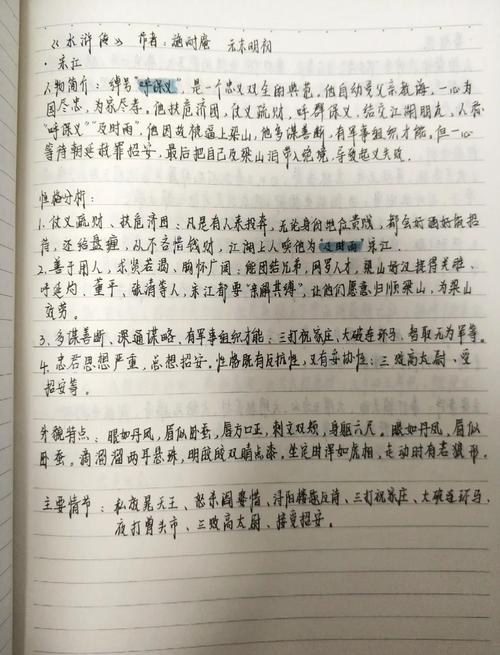 《水浒传》 作者：施耐庵 元末明初
· 宋江
人物简介：绰号“呼保义”是一个忠义双全的典范。他自幼受父亲教诲，一心为
国尽忠，为家尽孝。他扶危济困，仗义疏财，呼群保义，结交江湖朋友，人称
“呼保义”“及时雨”。他因故被逼上梁山，他多谋善断，有军事组织才能。但一心
等待朝廷赦罪招安，最后把自己及梁山泊带入绝境，导致起义失败。
性格分析：
1. 仗义疏财、扶危济困：凡是有人来投奔，无论身份地位贵贱，都会好酒好饭招
待，还给盘缠，从不吝惜钱财，江湖上人唤他为“及时雨”宋江.
2. 善于用人，求贤若渴、胸怀广阔：能团结兄弟，网罗人才，梁山好汉捉得关胜、
呼延灼、董平、张清等人，宋江都要“亲解其缚”，让他们愿意归顺梁山，为梁山
效劳。
3、多谋善断、深通谋略、有军事组织才能：三打祝家庄、大破连环马、智取无为军等。
4. 忠君思想严重，总想招安。性格既有反抗性，又有妥协性：三败高太尉、受
招安等。
外貌特点：眼如丹凤，眉似卧蚕，唇方口正，刺文双颊，身躯六尺。眼如丹凤，眉似
卧蚕。滴溜溜两耳悬珠，明皎皎双睛点漆，坐定时浑如虎相，走动时有若狼形.
主要情节：私放晁天王、怒杀阎婆惜、浔阳楼题反诗、三打祝家庄、大破连环马、
夜打曾头市、三败高太尉、接受招安。